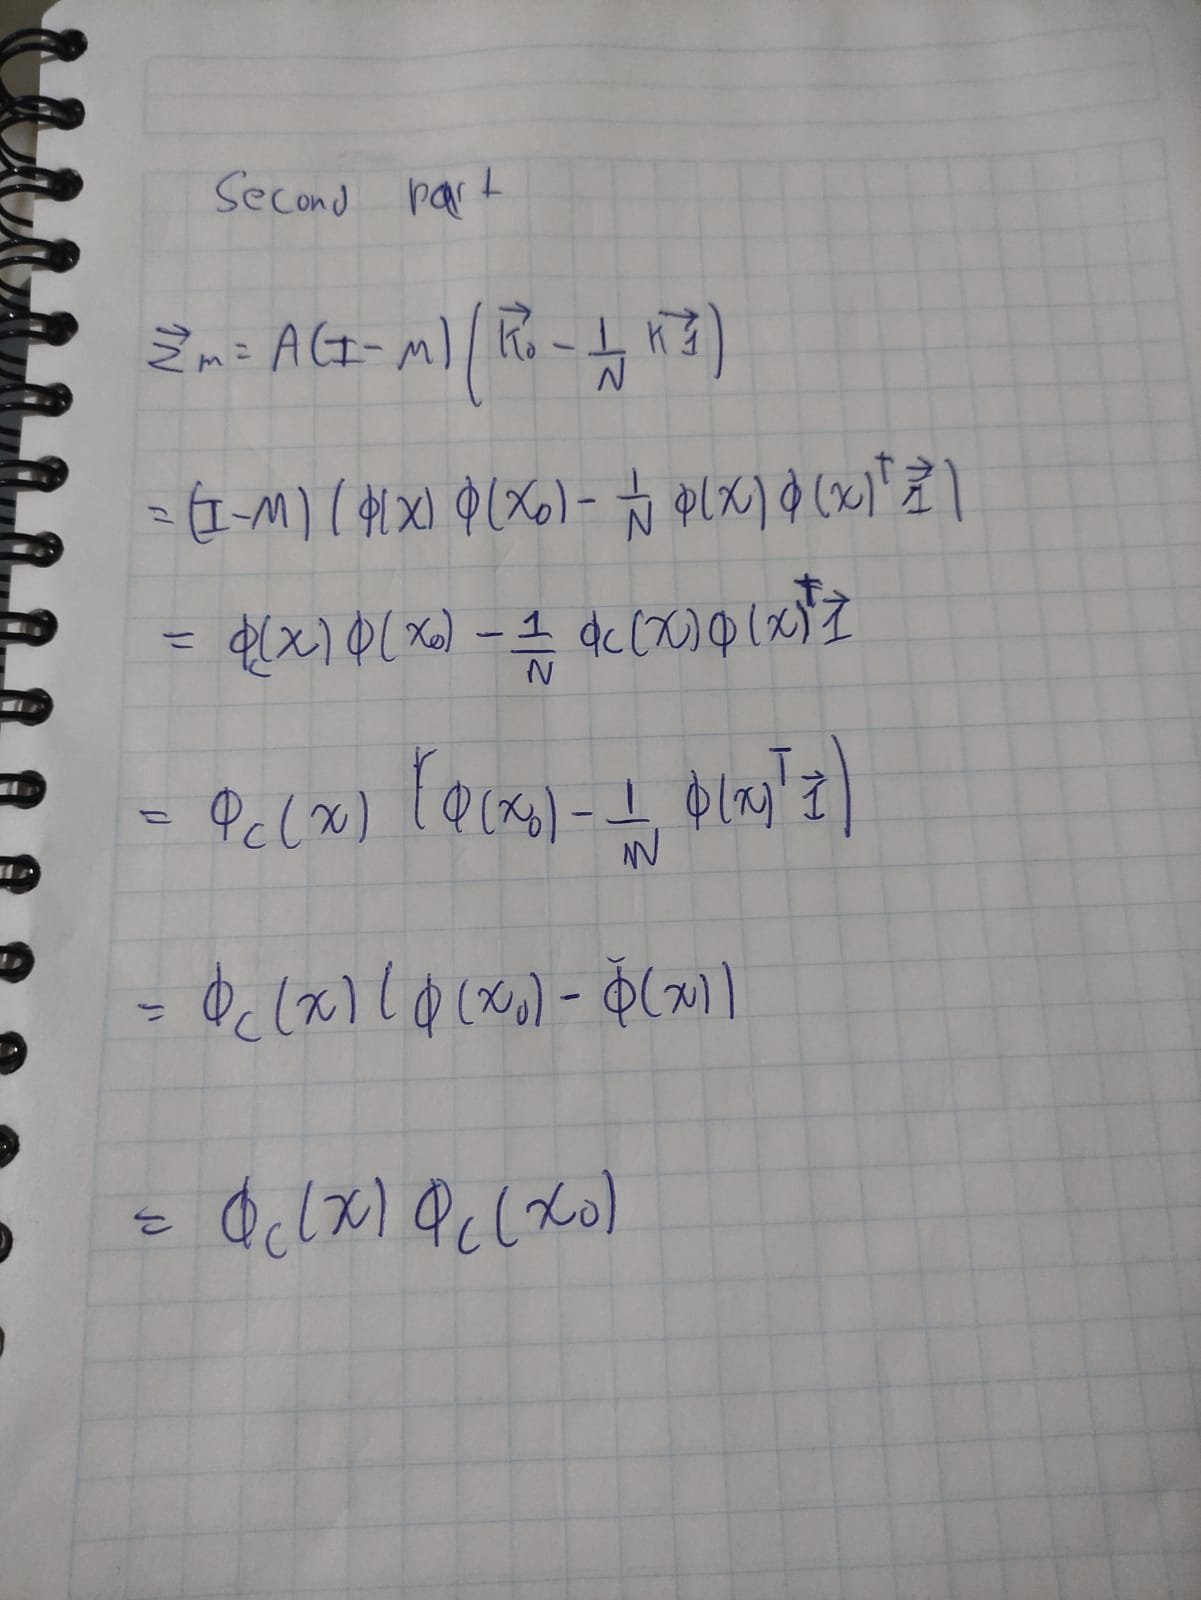 Second part
$\vec{z}_m = A(I-M)\left(\vec{K}_0 - \frac{1}{N} K\vec{1}\right)$
$= (I-M)(\phi(x)\phi(x_0) - \frac{1}{N}\phi(x)\phi(x)^T\vec{1})$
$= \phi_c(x)\phi(x_0) - \frac{1}{N}\phi_c(x)\phi(x)^T\vec{1}$
$= \phi_c(x)\left[\phi(x_0) - \frac{1}{N}\phi(x)^T\vec{1}\right)$
$= \phi_c(x)(\phi(x_0) - \bar{\phi}(x))$
$= \phi_c(x)\phi_c(x_0)$